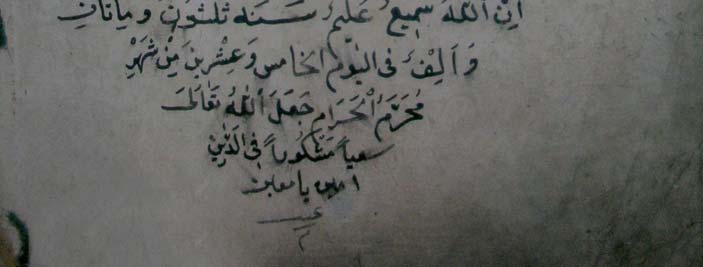 اِنَّ اللّٰهَ سَمِيعٌ عَلِيمٌ سَنَه ثلٰثُونَ وَمِايَاتَانِ
وَاَلِفٌ فِى اليَوْمِ الخَامِس وَعِشْرِينَ مِنْ شَهْرِ
مُحَرَّمُ الْحَرَامِ جَعَلَ اَللّٰهُ تَعَالَى
سعياً مَشْكُوراً فِى الدِّينِ
امين يا معين